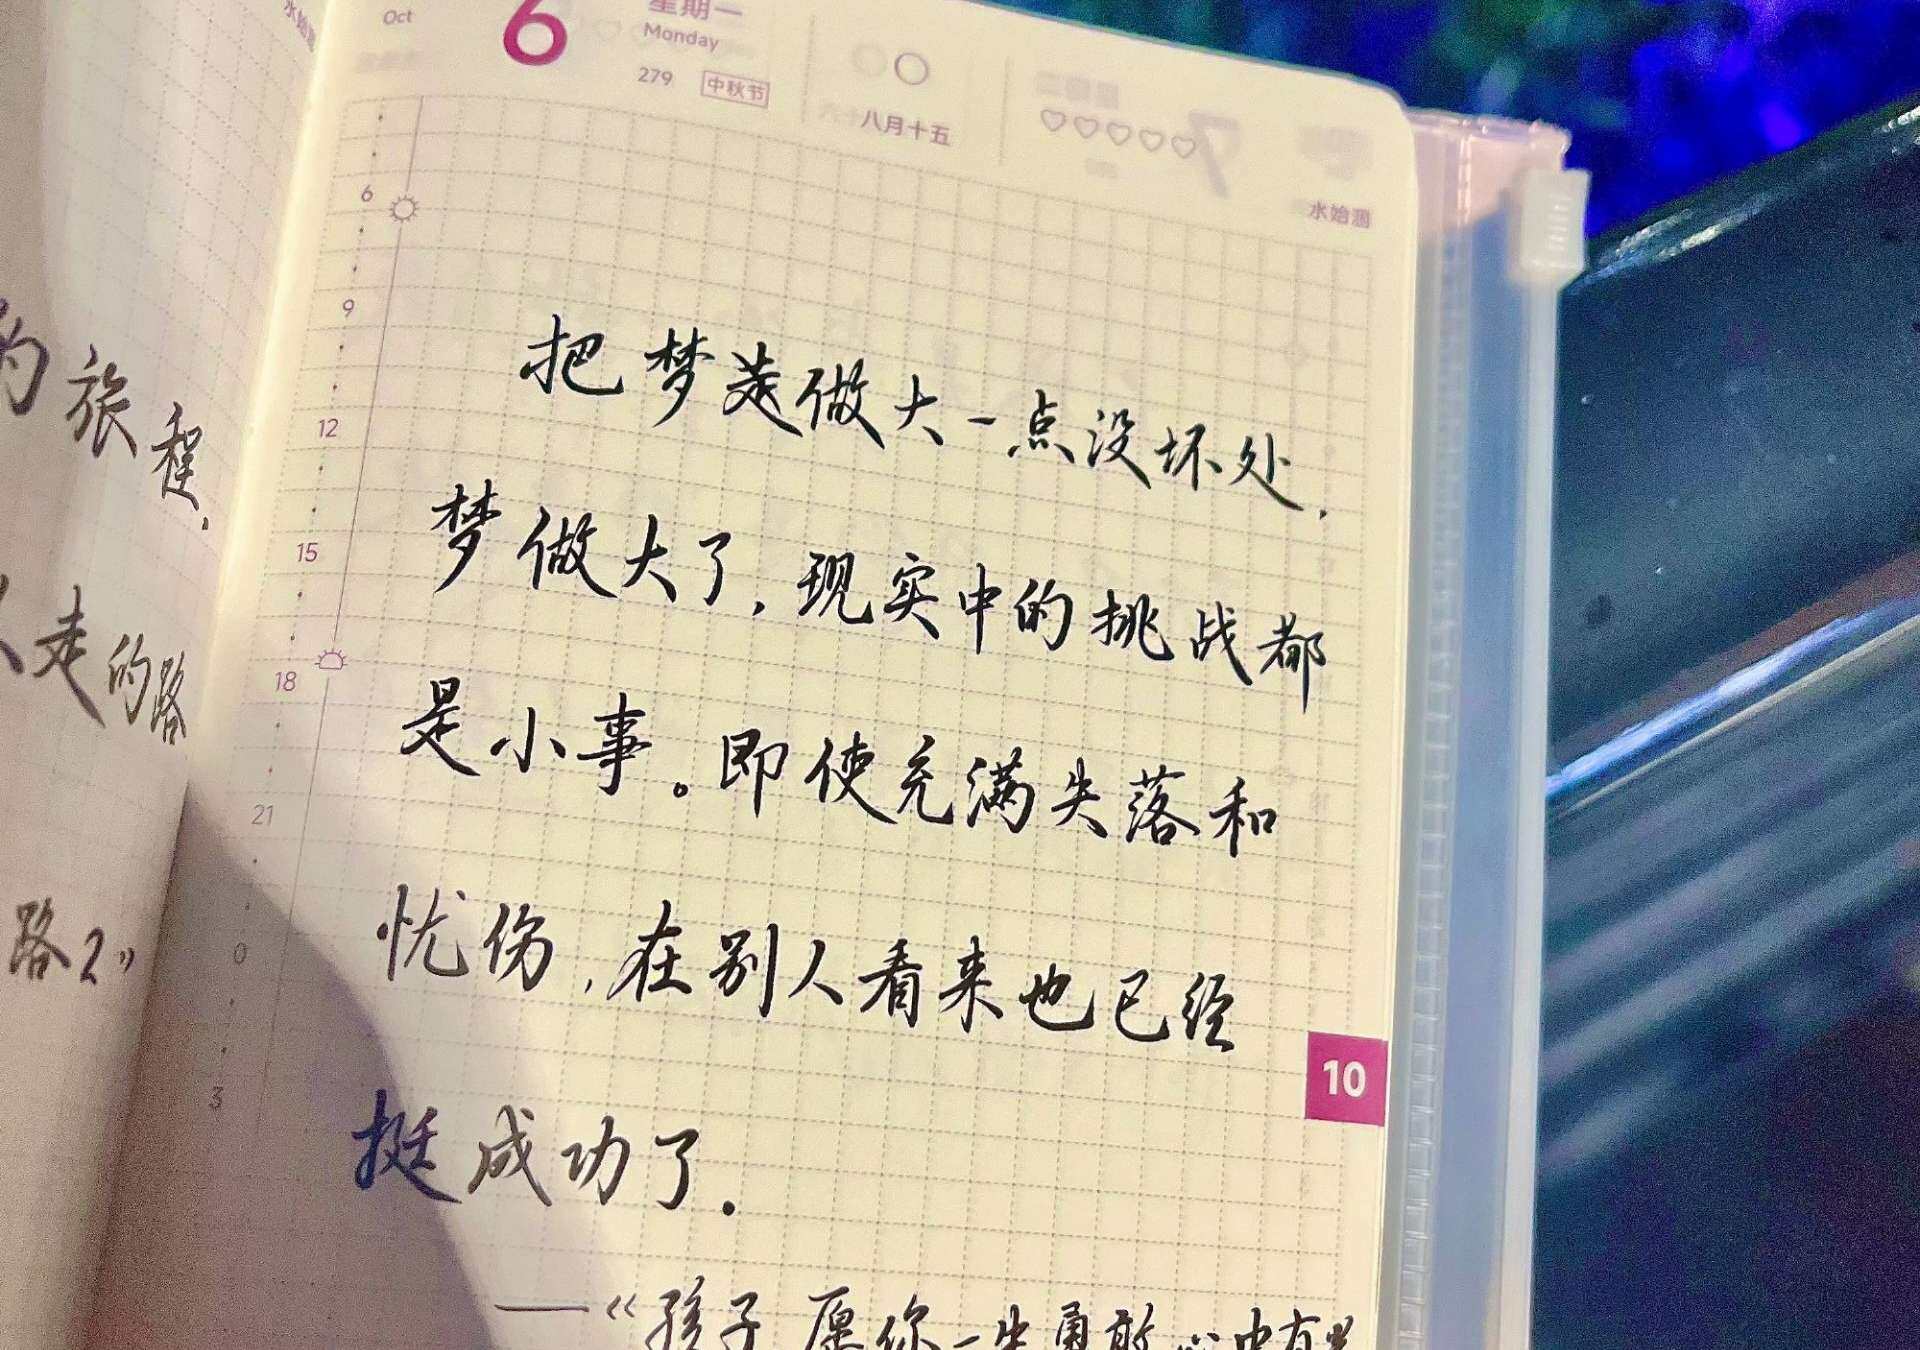 Oct
6
星期一
Monday
279
中秋节
八月十五
水始涸
6
9
12
15
18
21
0
3
把梦做大一点没坏处,
梦做大了,现实中的挑战都
是小事。即使充满失落和
忧伤,在别人看来也已经
挺成功了.
——《孩子 愿你一生勇敢 心中有
10
的旅程,
人走的路
路2》